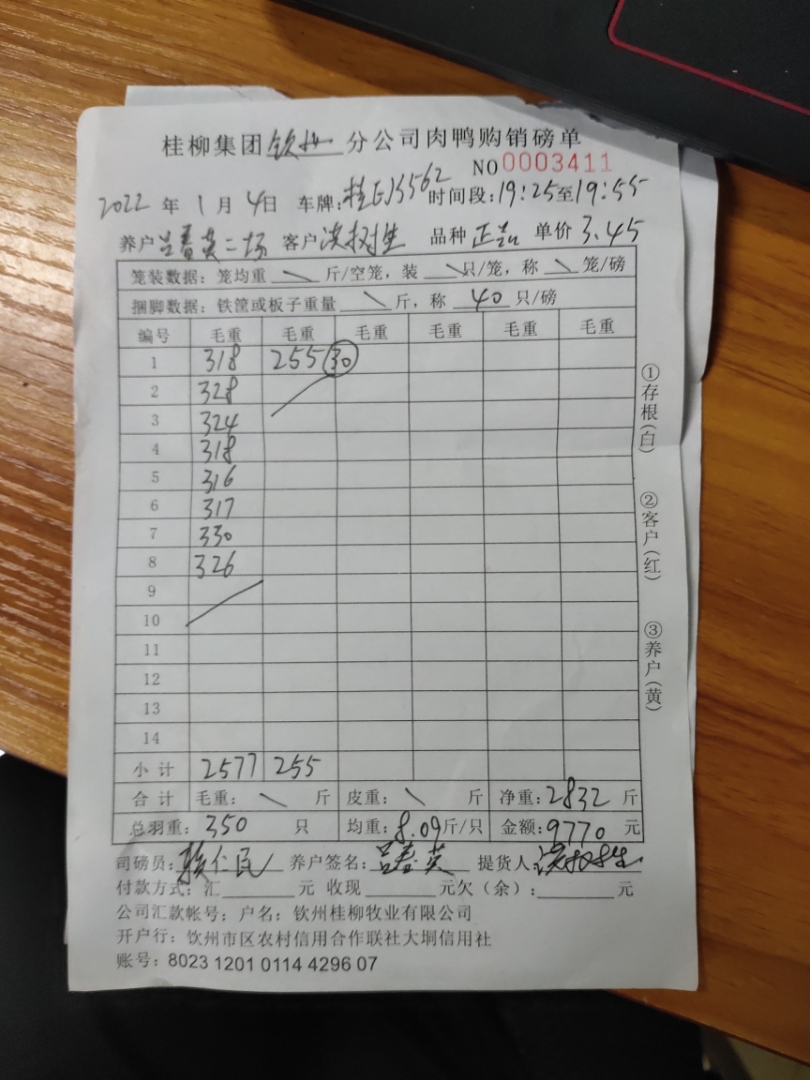 桂柳集团钦州分公司肉鸭购销磅单
NO 0003411
2022年1月4日 车牌:桂EJ5562 时间段:19:25至19:55
养户 吕春英二场 客户 洪树生 品种 正吉 单价 3.45
笼装数据:笼均重 \ 斤/空笼,装 \ 只/笼,称 \ 笼/磅
捆脚数据:铁筐或板子重量 \ 斤,称 40 只/磅
编号 毛重 毛重 毛重 毛重 毛重 毛重
1 318 255/30
2 328
3 324
4 318
5 316
6 317
7 330
8 326
9
10
11
12
13
14
小计 2577 255
合计 毛重: \ 斤 皮重: \ 斤 净重:2832 斤
总羽重:350 只 均重:8.09斤/只 金额:9770 元
司磅员: 养户签名:吕春英 提货人:洪树生
付款方式:汇 元 收现 元欠(余): 元
公司汇款帐号:户名:钦州桂柳牧业有限公司
开户行:钦州市区农村信用合作联社大垌信用社
账号:8023 1201 0114 4296 07
①存根(白)
②客户(红)
③养户(黄)